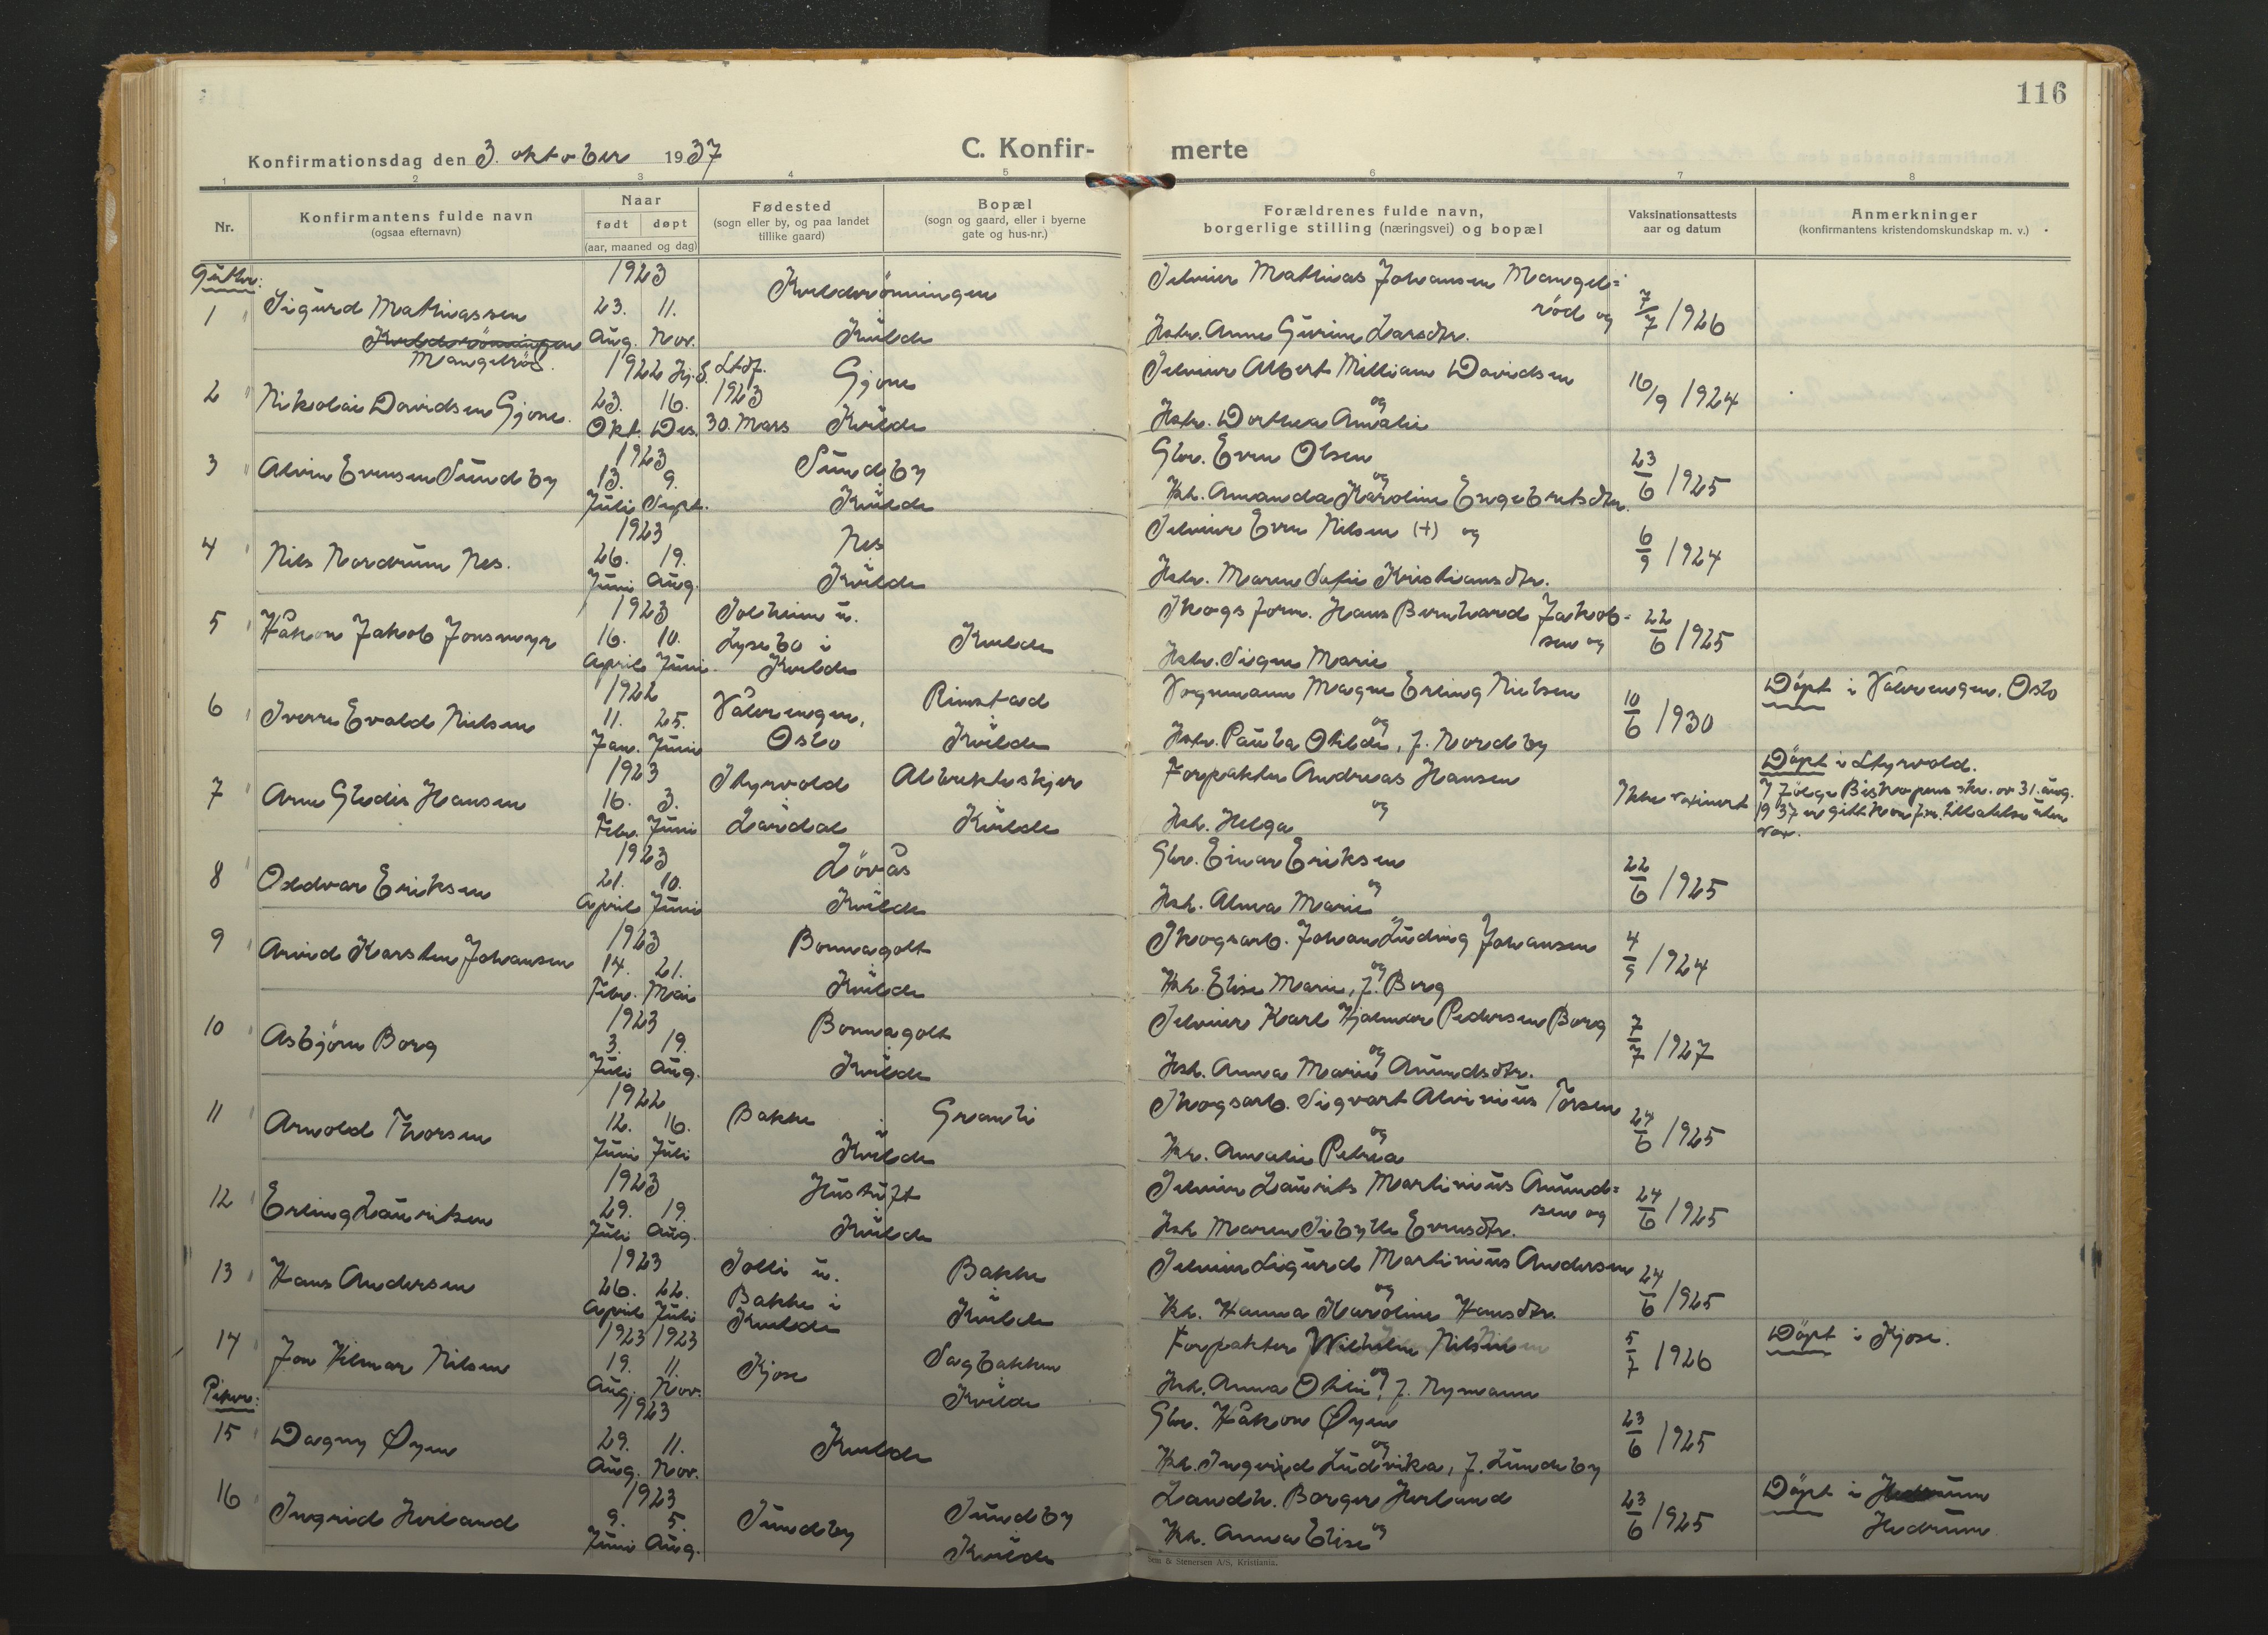 116
Konfirmationsdag den 3. oktober 1937
C. Konfir-merte
1 2 3 4 5 6 7 8
Nr.
Konfirmantens fulde navn
(ogsaa efternavn)
Naar
født døpt
(aar, maaned og dag)
Fødested
(sogn eller by, og paa landet
tillike gaard)
Bopæl
(sogn og gaard, eller i byerne
gate og hus-nr.)
Forældrenes fulde navn,
borgerlige stilling (næringsvei) og bopæl
Vaksinationsattests
aar og datum
Anmerkninger
(konfirmantens kristendomskundskap m. v.)
Gutter:
1 Sigurd Mathiassen
Kvelderönningen
Mangelröd.
1923
23. 11.
Aug. Nov.
Kvelderönningen
i
Kvelde
Selveier Mathias Johansen Mangel=
röd og
Hstr. Anne Gurine Larsdtr.
7/7 1926
2 Nikolai Davidsen Gjone.
1922 Hj.d. Stdf.
23. 16. 1923
Okt. Des. 30. Mars
Gjone
Kvelde
Selveier Albert William Davidsen
og
Hstr. Dorthea Amalie
16/9 1924
3 Alvin Evensen Sundby
1923
13. 9.
Juli Sept.
Sundby
i
Kvelde
Gbr. Even Olsen
og
Hstr. Amanda Karoline Engebretsdtr.
23/6 1925
4 Nils Nordrum Nes.
1923
26. 19.
Juni Aug.
Nes
i
Kvelde
Selveier Even Nilsen (+) og
Hstr. Maren Sofie Kristiansdtr.
6/9 1924
5 Håkon Jakob Jonsmyr
1923
16. 10.
April Juni
Solheim u.
Lysebo i
Kvelde
Kvelde
Skogsform. Hans Bernhard Jakob-
sen og
Hstr. Signe Marie
22/6 1925
6 Sverre Evald Nielsen
1922
11. 25.
Jan. Juni
Vålerengen,
Oslo
Rimstad
i
Kvelde
Vognmann Magne Erling Nielsen
og
Hstr. Paula Otilde, f. Nordby
10/6 1930
Döpt i Vålerengen, Oslo
7 Arne Gledis Hansen
1923
16. 3.
Febr. Juni
Styrvold
Lardal
Albrektskjer
i
Kvelde
Forpakter Andreas Hansen
og
Hstr. Helga
Ikke vaxinert
Döpt i Styrvold.
I fölge Biskopens skr. av 31. aug.
1937 er gitt konfirm. tillatelse uten
vax.
8 Oddvar Eriksen
1923
21. 10.
April Juni
Lövås
i
Kvelde
Gbr. Einar Eriksen
og
Hstr. Alma Marie
22/6 1925
9 Arvid Karsten Johansen
1923
14. 21.
Febr. Mai
Bonnegolt
i
Kvelde
Skogsarb. Johan Ludvig Johansen
og
Hstr. Elise Marie, f. Borg
4/9 1924
10 Asbjörn Borg
1923
3. 19.
Juli Aug.
Bonnegolt
i
Kvelde
Selveier Karl Hjalmar Pedersen Borg
og
Hstr. Anna Marie Amundsdtr.
7/7 1927
11 Arnold Thorsen
1922
12. 16.
Juni Juli
Bakke
Granli
i
Kvelde
Skogsarb. Sigvart Alvinius Torsen
og
Hstr. Amalie Petrea
24/6 1925
12 Erling Lauritsen
1923
29. 19.
Juli Aug.
Hustuft
i
Kvelde
Selveier Laurits Martinius Amund=
sen og
Hstr Maren Sibylle Evensdtr.
24/6 1925
13 Hans Andersen
1923
26. 22.
April Juli
Solli u.
Bakke i
Kvelde
Bakke
i
Kvelde
Selveier Sigurd Martinius Andersen
og
Hstr. Hanna Karoline Hansdtr.
24/6 1925
14 Jon Hilmar Nilsen
1923 1923
19. 11.
Aug. Nov.
Kjose
Sagbakken
i
Kvelde
Forpakter Wilhelm Nilsen
og
Hstr. Anna Otilie, f. Nymann
5/7 1926
Döpt i Kjose.
Piker:
15 Dagny Øyen
1923
29. 11.
Aug. Nov.
Kvelde
Gbr. Håkon Øyen
og
Hstr. Ingvild Ludvika, f. Lundeby
23/6 1925
16 Ingrid Herland
1923
9. 5.
Juni Aug.
Sundby
Sundby
i
Kvelde
Landh. Borger Herland
og
Hstr. Anna Elise
23/6 1925
Döpt i
Hedrum
Sem & Stenersen A/S, Kristiania.